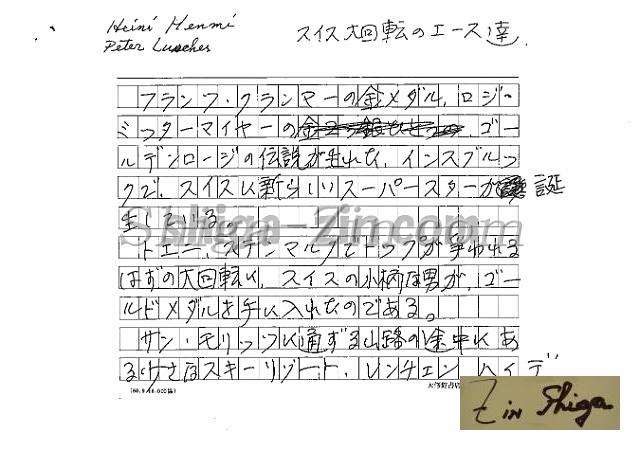 Heini Hemmi
Peter Luscher
スイス大回転のエース達
フランツ・クランマーの金メダル、ロジ・
ミッターマイヤーの ゴー
ルデンロージの伝説が生れた、インスブルッ
クで、スイスに新らしいスーパースターが 誕
生している。
トエニ、ステンマルクでトップが争われる
はずの大回転に、スイスの小柄な男が、ゴー
ルドメダルを手に入れたのである。
サン・モリッツに通ずる山路の途中にあ
る小さなスキーリゾート、レンチェン ハイデ
(60.9.10.000協)
大修館書店
Shiga-Zin.com
Z in Shiga